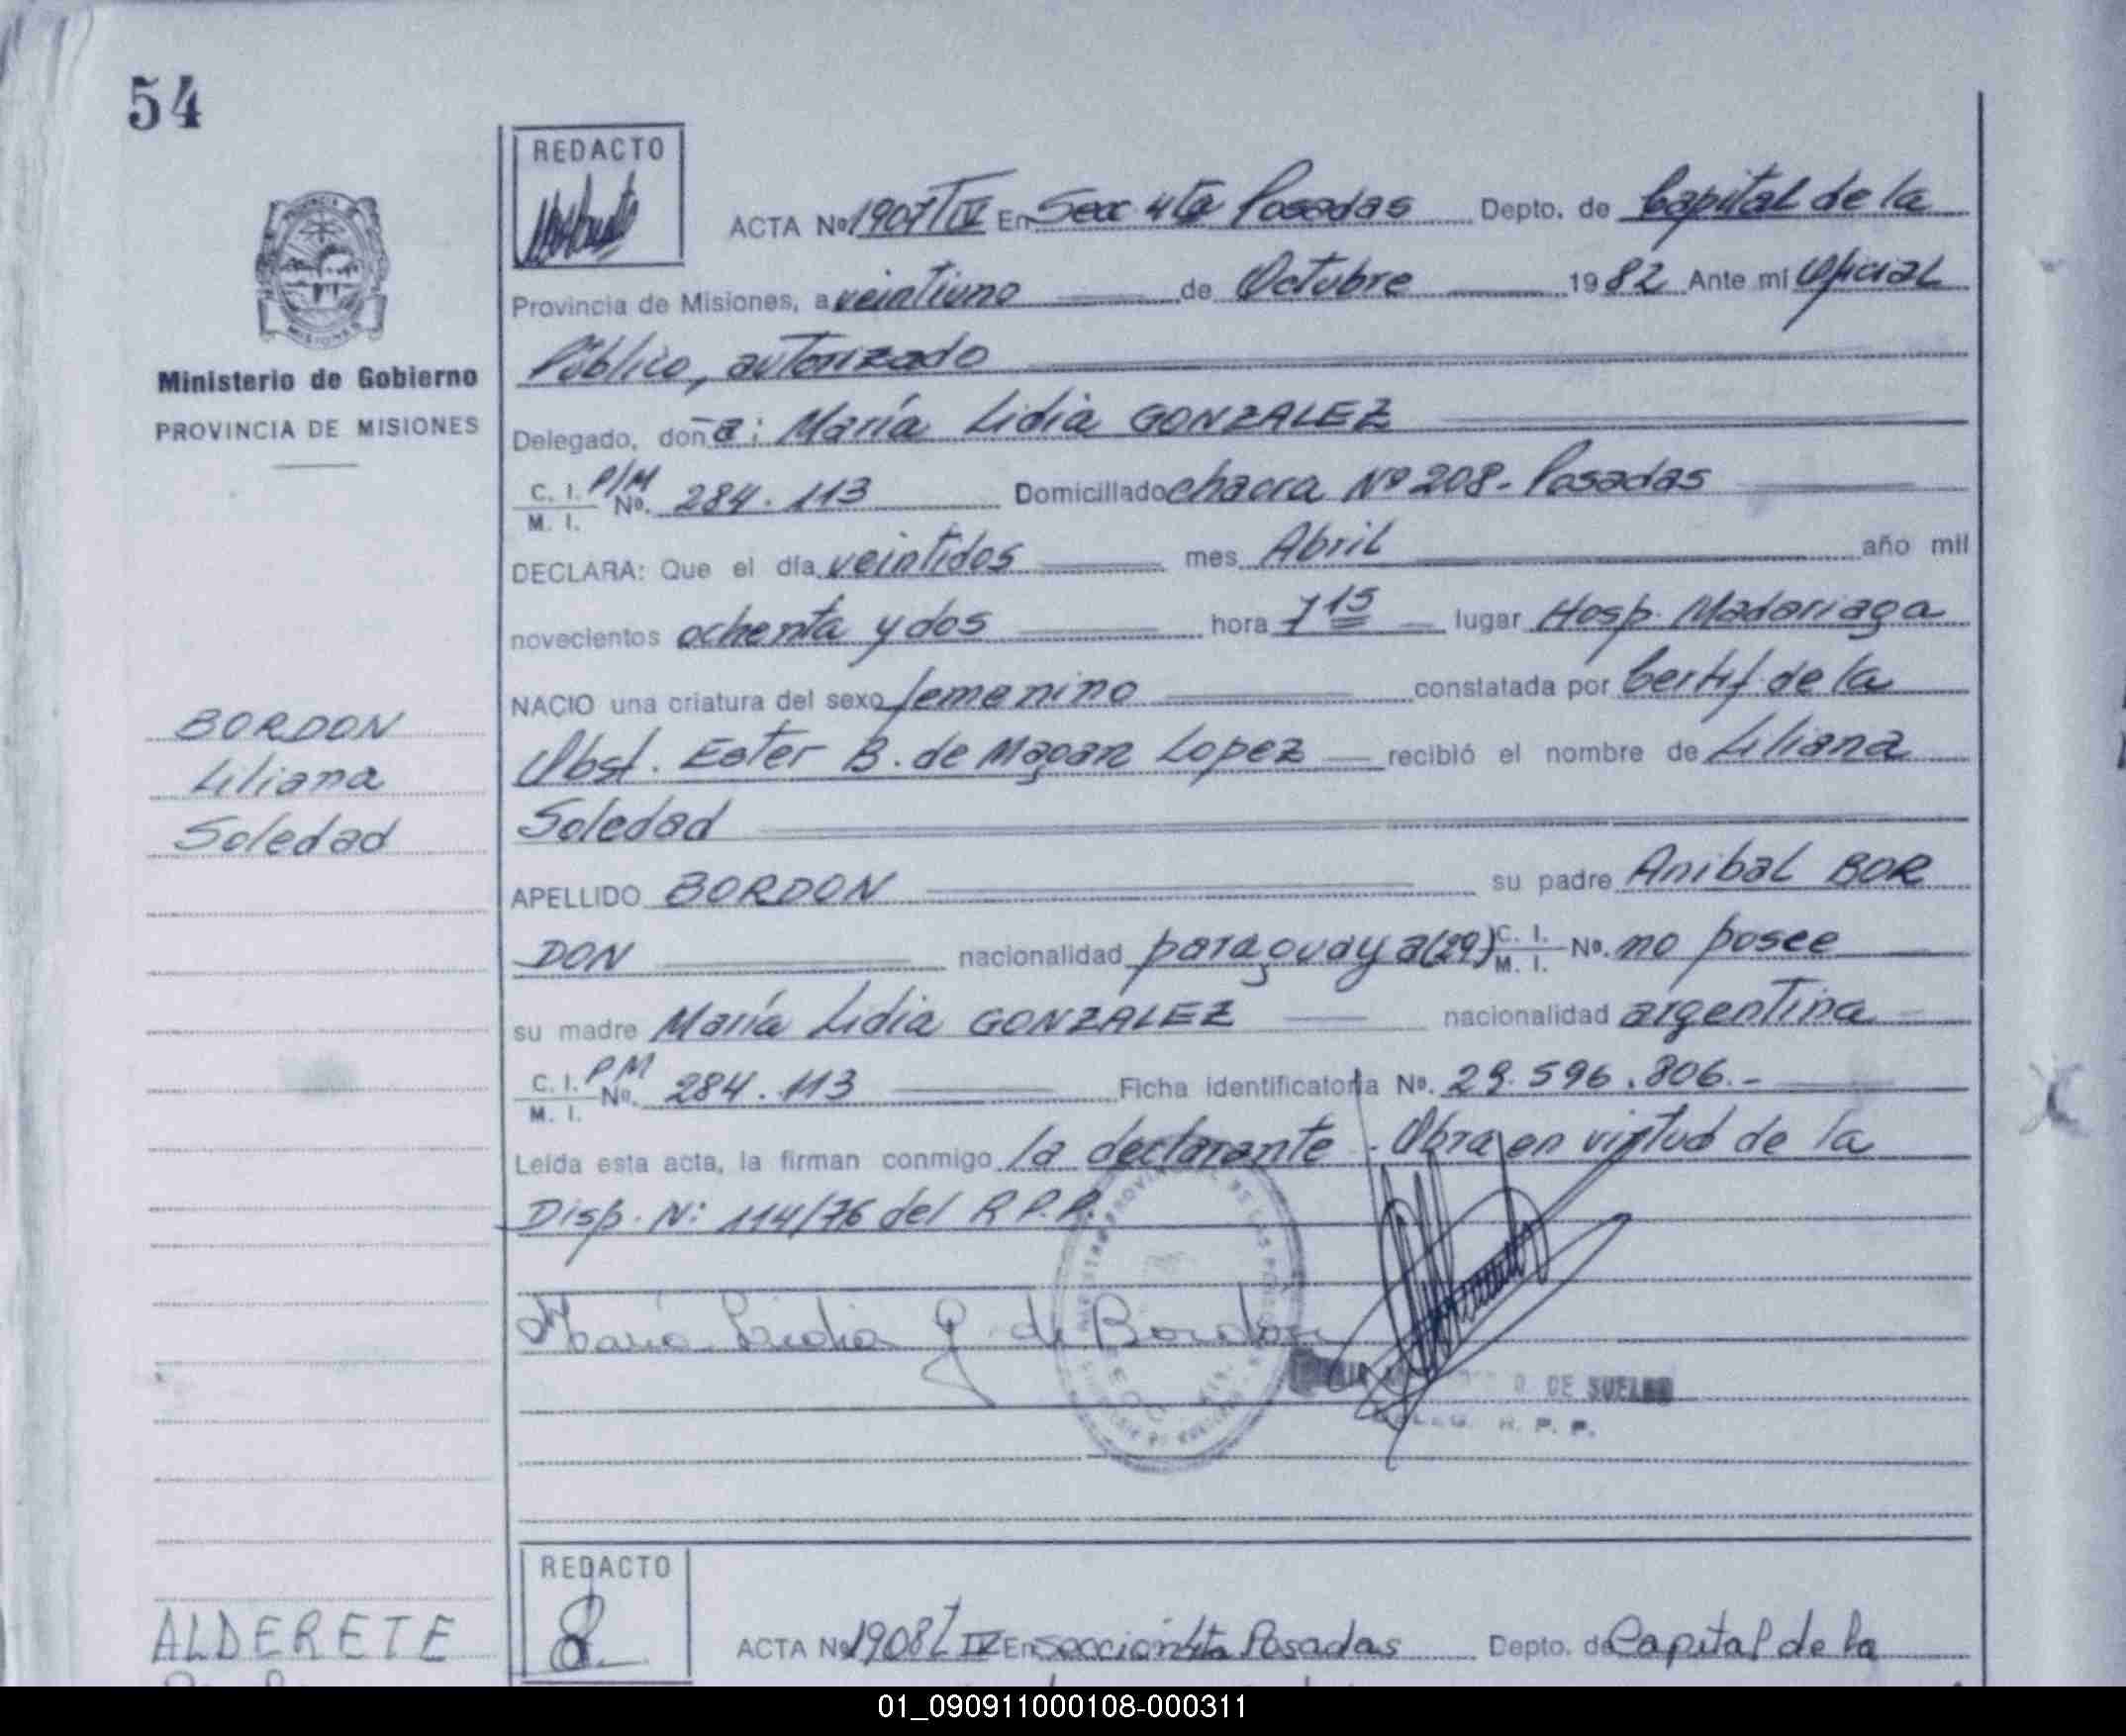 54
REDACTO
ACTA Nº 1907/TIV En Secc 4ta Posadas Depto. de Capital de la
Provincia de Misiones, a veintiuno de Octubre 1982 Ante mí Oficial
Público, autorizado
Ministerio de Gobierno
PROVINCIA DE MISIONES
Delegado, doña: María Lidia GONZALEZ
C. I. P/M
M. I. Nº. 284.113 Domiciliado chacra Nº 208. Posadas
DECLARA: Que el día veintidos mes Abril año mil
novecientos ochenta y dos hora 7 15 lugar Hosp. Madariaga
NACIO una criatura del sexo femenino constatada por Certif. de la
Obst. Ester B. de Lopez recibió el nombre de Liliana
Soledad
BORDON
Liliana
Soledad
APELLIDO BORDON su padre Anibal BOR
DON nacionalidad paraguaya (29) C. I. M. I. Nº. no posee
su madre María Lidia GONZALEZ nacionalidad argentina
C. I. PM
M. I. Nº. 284.113 Ficha identificatoria Nº. 29.596.806.-
Leída esta acta, la firman conmigo la declarante. Obra en virtud de la
Disp. N: 114/76 del R.P.P.
María Lidia G. de Bordon
D. DE SUELDO
DELEG. R. P. P.
ALDERETE
REDACTO
ACTA Nº 1908 T IV En sección 4ta Posadas Depto. de Capital de la
01_090911000108-000311